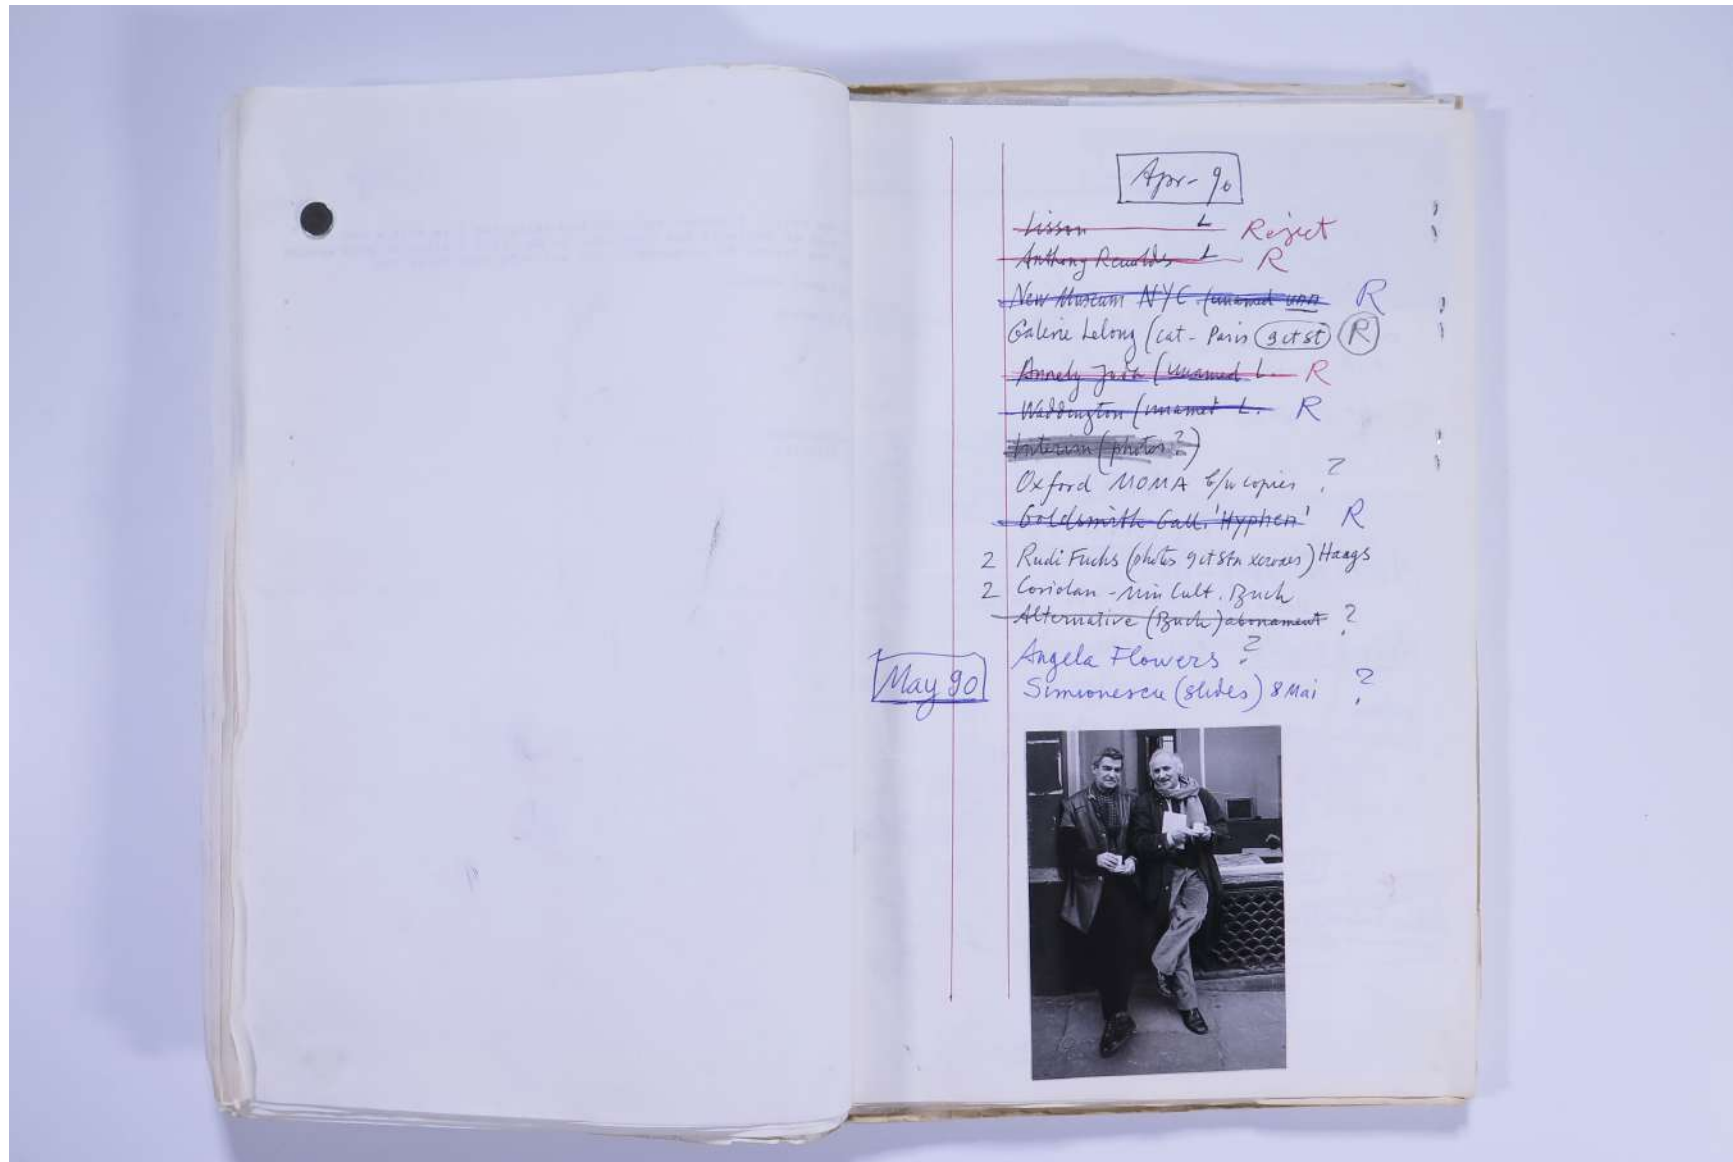 Apr- 90
Lisson L Reject
Anthony Reynolds L R
New Museum NYC. (unamed R
Galerie Lelong (cat - Paris 9 ct st R
Annely Juda (unamed L. R
Waddington (unamed L. R
Interim (photos ?)
Oxford MOMA b/w copies ?
Goldsmith Gall. 'Hyphen' R
2 Rudi Fuchs (photos 9 ct stn xeroxes) Haags
2 Coriolan - Min Cult. Buch
Alternative (Buch) abonament ?
Angela Flowers ?
May 90 Simionescu (slides) 8 Mai ?